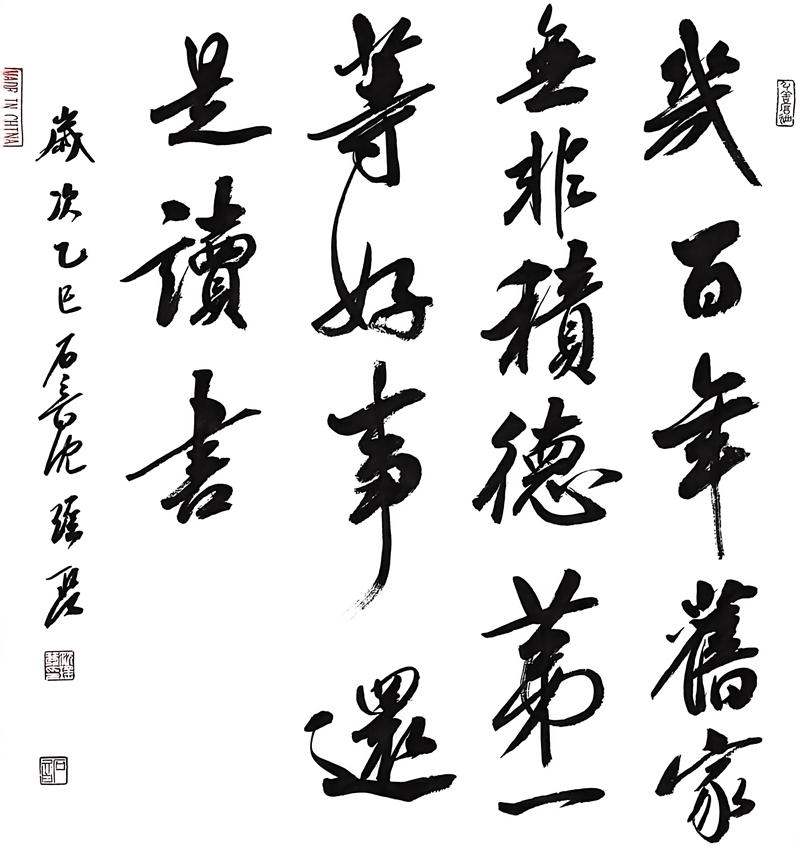 幾百年舊家
無非積德第一
等好事還
是讀書
歲次乙巳石沈
MADE IN CHINA